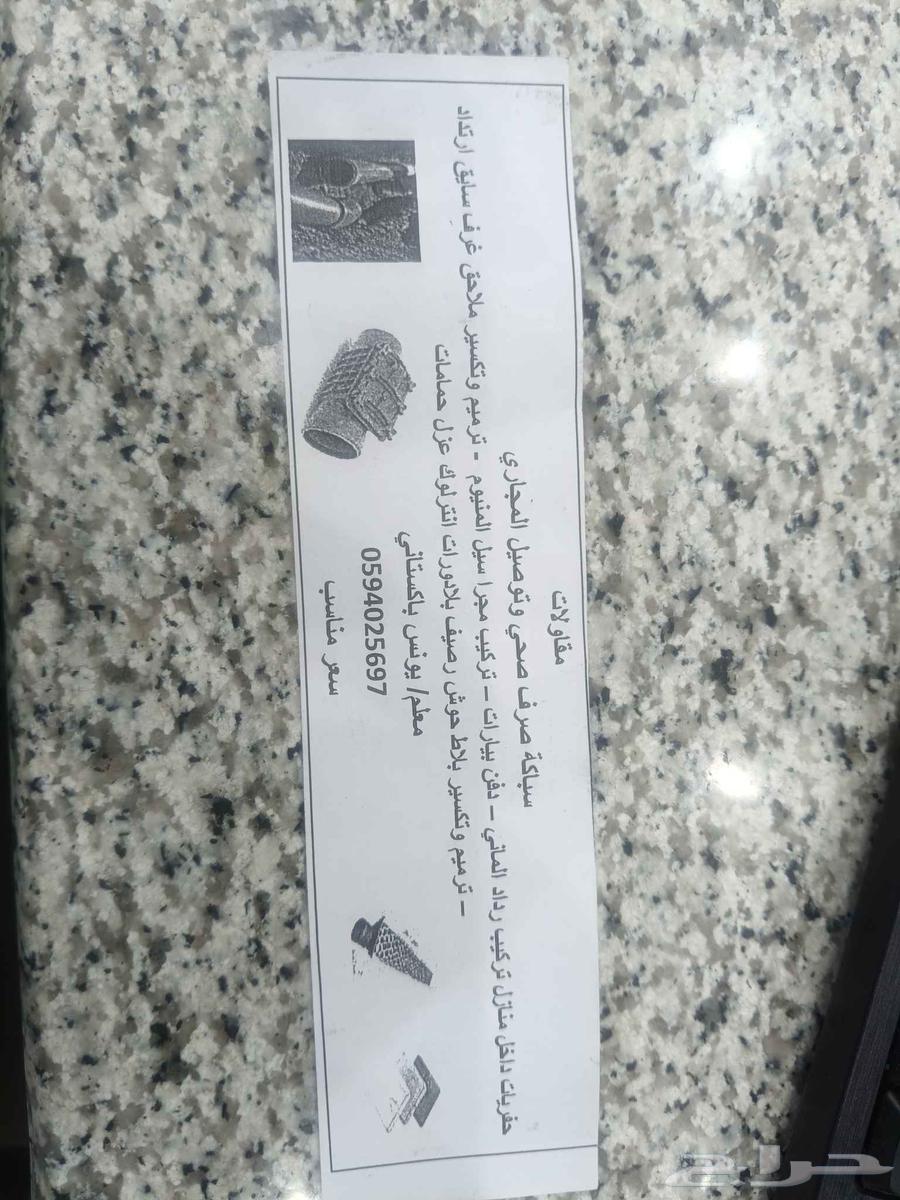 مقاولات
سباكة صرف صحي وتوصيل المجاري
حفريات داخل منازل تركيب رداد الماني – دفن بيارات – تركيب مجرا سيل المنيوم - ترميم وتكسير ملاحق غرف سايق ارتداد
– ترميم وتكسير بلاط حوش رصيف بلادورات انترلوك عزل حمامات
معلم/ يونس باكستاني
0594025697
سعر مناسب
حراج